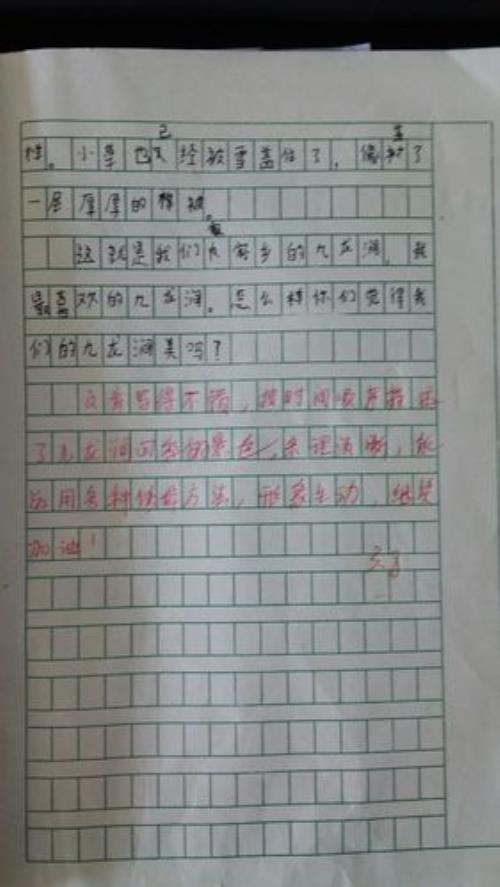 性。小草也已经被雪盖住了，像盖了
一层厚厚的棉被。
这就是我们家乡的九龙涧，我
最喜欢的九龙涧。怎么样你们觉得我
们的九龙涧美吗？
文章写得不错，按时间顺序描
了九龙涧四季的景色，条理清晰，能
运用各种修辞方法，形象生动，继续
加油！
38